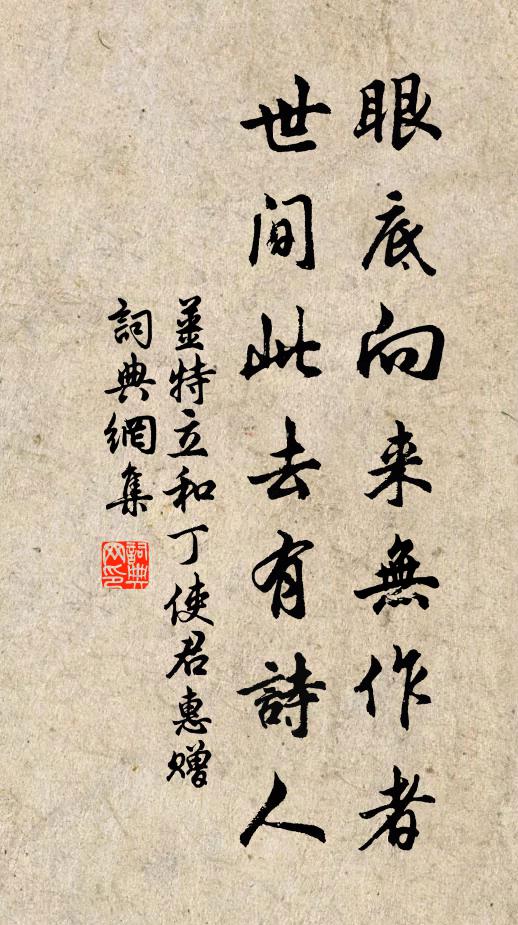 眼底向来無作者
世间此去有詩人
姜特立和丁使君惠赠
詞典網集
詞典
网印